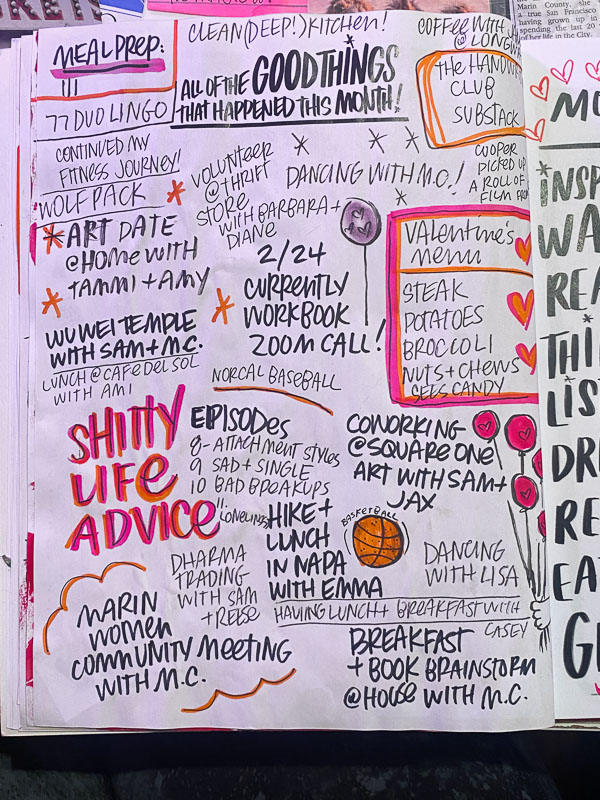 Marin County, she
a true San Francisco
having grown up in
spending the last 20
of her life in the City.
MEAL PREP:
CLEAN (DEEP!) KITCHEN!
COFFEE WITH
@ LONGW
ALL OF THE GOOD THINGS
THAT HAPPENED THIS MONTH!
THE HANDWR
CLUB
SUBSTACK
77 DUO LINGO
CONTINUED MY
FITNESS JOURNEY!
WOLF PACK
VOLUNTEER
@ THRIFT
STORE
WITH BARBARA +
DIANE
DANCING WITH M.C.!
COOPER
PICKED UP
A ROLL OF
FILM FROM
ART DATE
@ HOME WITH
TAMMI + AMY
2/24
CURRENTLY
WORKBOOK
ZOOM CALL!
VALENTINE'S
MENU
STEAK
POTATOES
BROCCOLI
NUTS + CHEWS
SEES CANDY
WU WEI TEMPLE
WITH SAM + M.C.
LUNCH @ CAFE DEL SOL
WITH AMI
NORCAL BASEBALL
SHITTY
LIFE
ADVICE
EPISODES
8- ATTACHMENT STYLES
9 SAD + SINGLE
10 BAD BREAKUPS
11. LONELINESS
COWORKING
@ SQUARE ONE
ART WITH SAM +
JAX
HIKE +
LUNCH
IN NAPA
WITH EMMA
BASKETBALL
DANCING
WITH LISA
DHARMA
TRADING
WITH SAM
+ REESE
HAVING LUNCH + BREAKFAST WITH
CASEY
MARIN
WOMEN
COMMUNITY MEETING
WITH M.C.
BREAKFAST
+ BOOK BRAINSTORM
@ HOUSE WITH M.C.
MO
INSP
WA
REA
THI
LIS
DRI
RE
EAT
G